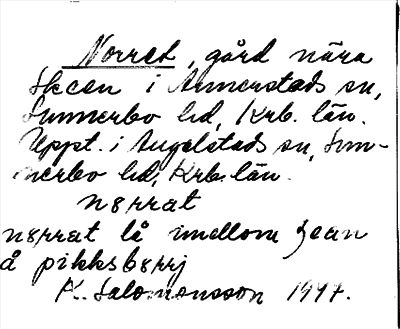 Norret, gård nära
Skeen i Annerstads sn,
Sunnerbo hd, Krb. län.
Uppt. i Angelstads sn, Sun-
nerbo hd, Krb. län.
nɤrrat
nɤrrat lå imellom ʒean
å pikksbɤrj
K. Salomonsson 1947.